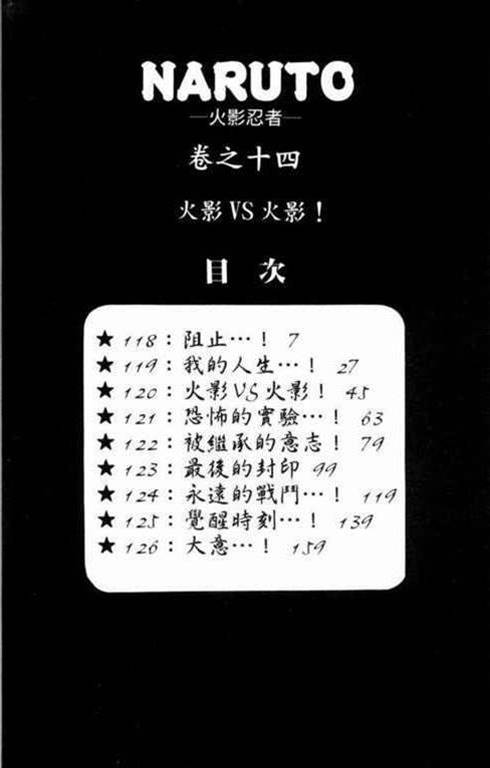 NARUTO
—火影忍者—
卷之十四
火影VS火影！
目次
★118：阻止…！ 7
★119：我的人生…！ 27
★120：火影VS火影！ 45
★121：恐怖的實驗…！ 63
★122：被繼承的意志！ 79
★123：最後的封印 99
★124：永遠的戰鬥…！ 119
★125：覺醒時刻…！ 139
★126：大意…！ 159